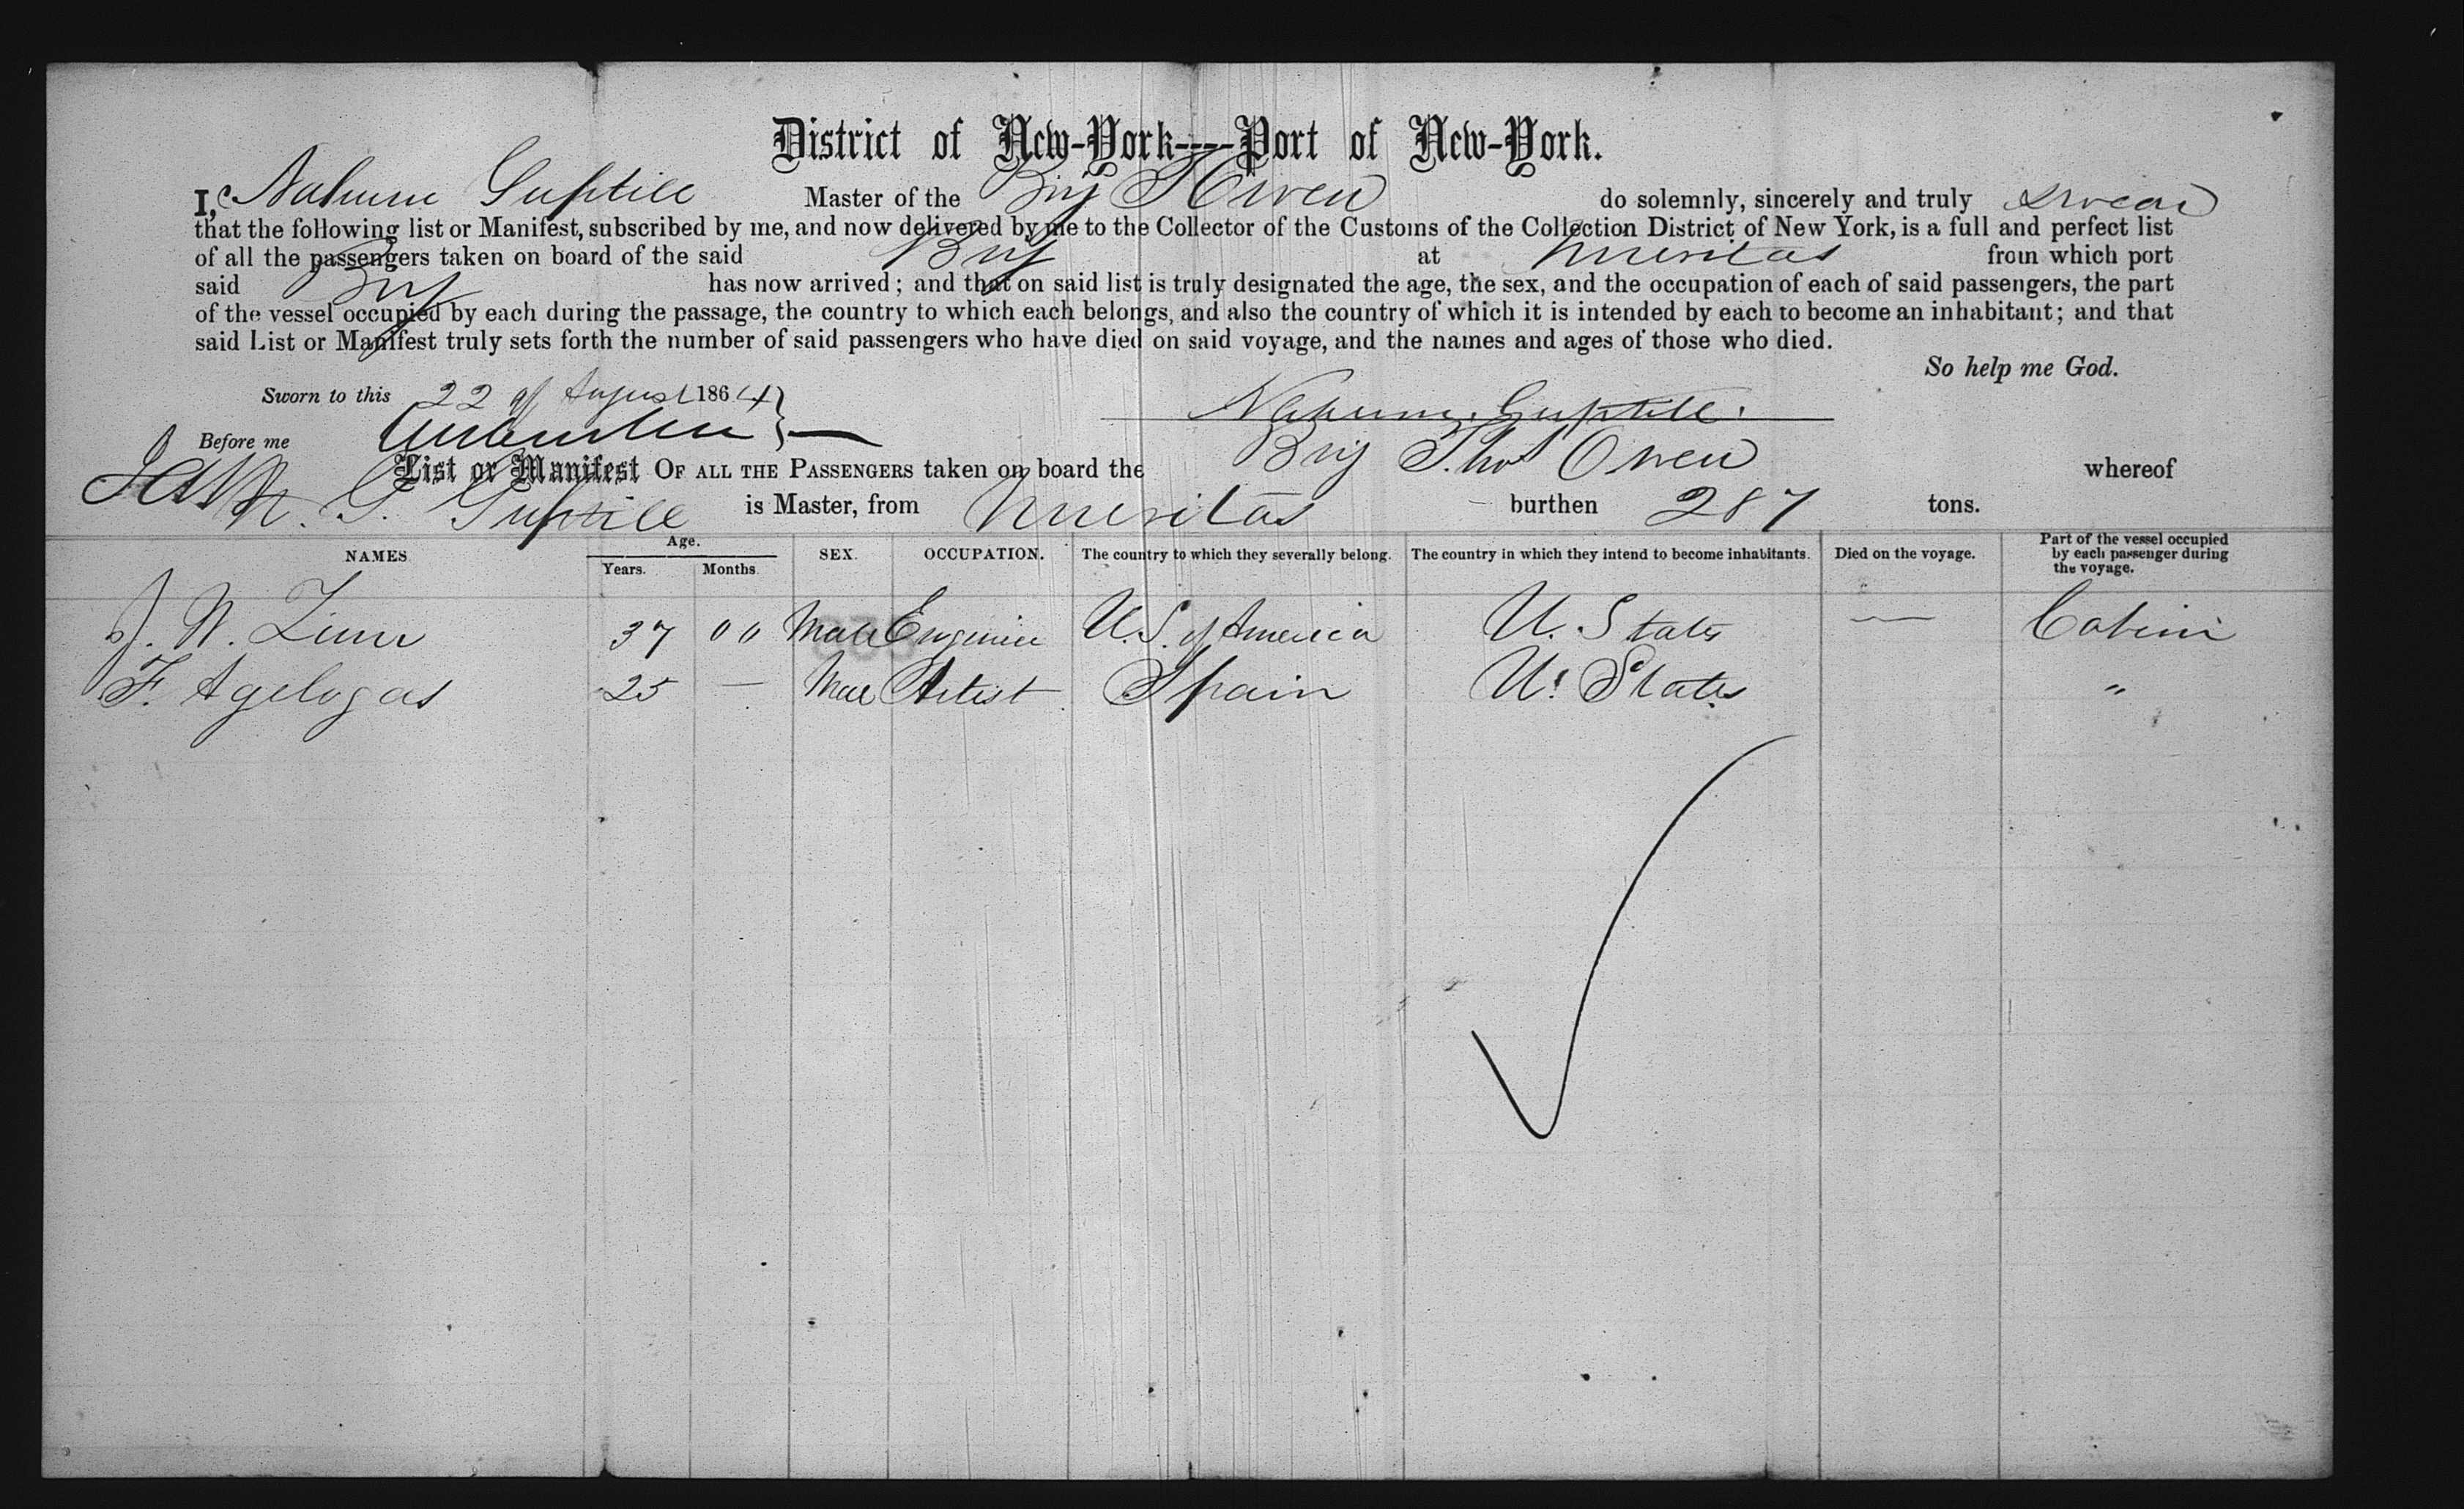 District of New-York----Port of New-York.
I, Nahum Guptill Master of the Brig T Owen do solemnly, sincerely and truly swear
that the following list or Manifest, subscribed by me, and now delivered by me to the Collector of the Customs of the Collection District of New York, is a full and perfect list
of all the passengers taken on board of the said Brig at Nuevitas from which port
said Brig has now arrived; and that on said list is truly designated the age, the sex, and the occupation of each of said passengers, the part
of the vessel occupied by each during the passage, the country to which each belongs, and also the country of which it is intended by each to become an inhabitant; and that
said List or Manifest truly sets forth the number of said passengers who have died on said voyage, and the names and ages of those who died.
So help me God.
Sworn to this 22 of August 1864
Nahum. Guptill.
Before me
List or Manifest OF ALL THE PASSENGERS taken on board the Brig Thos Owen whereof
N. G. Guptill is Master, from Nuevitas burthen 287 tons.
NAMES Age. Years. Months. SEX. OCCUPATION. The country to which they severally belong. The country in which they intend to become inhabitants. Died on the voyage. Part of the vessel occupied by each passenger during the voyage.
J. W. 37 00 Male Engineer U.S. of America U. States — Cabin
F. Agelogas 25 — Male Artist Spain U. States "